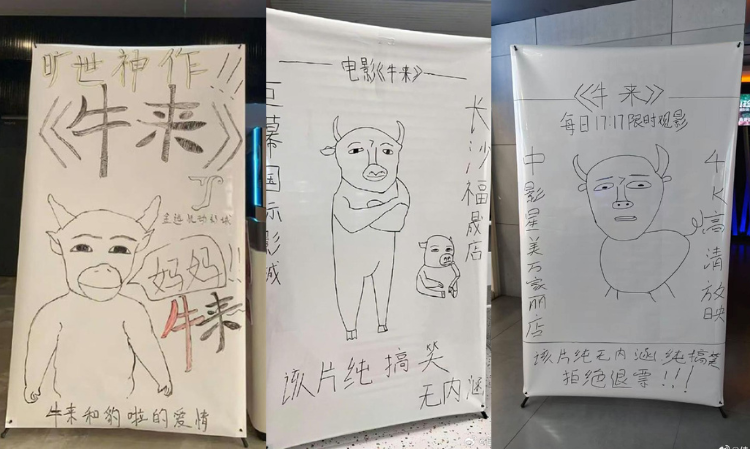 旷世神作!!!
《牛来》
妈妈!!
牛来
牛来和豹啦的爱情
电影《牛来》
巨幕国际影城
长沙福晟店
该片纯搞笑
无内涵
《牛来》
每日17:17限时观影
中影星美万家丽店
4K高清放映
该片纯无内涵 纯搞笑
拒绝退票!!!